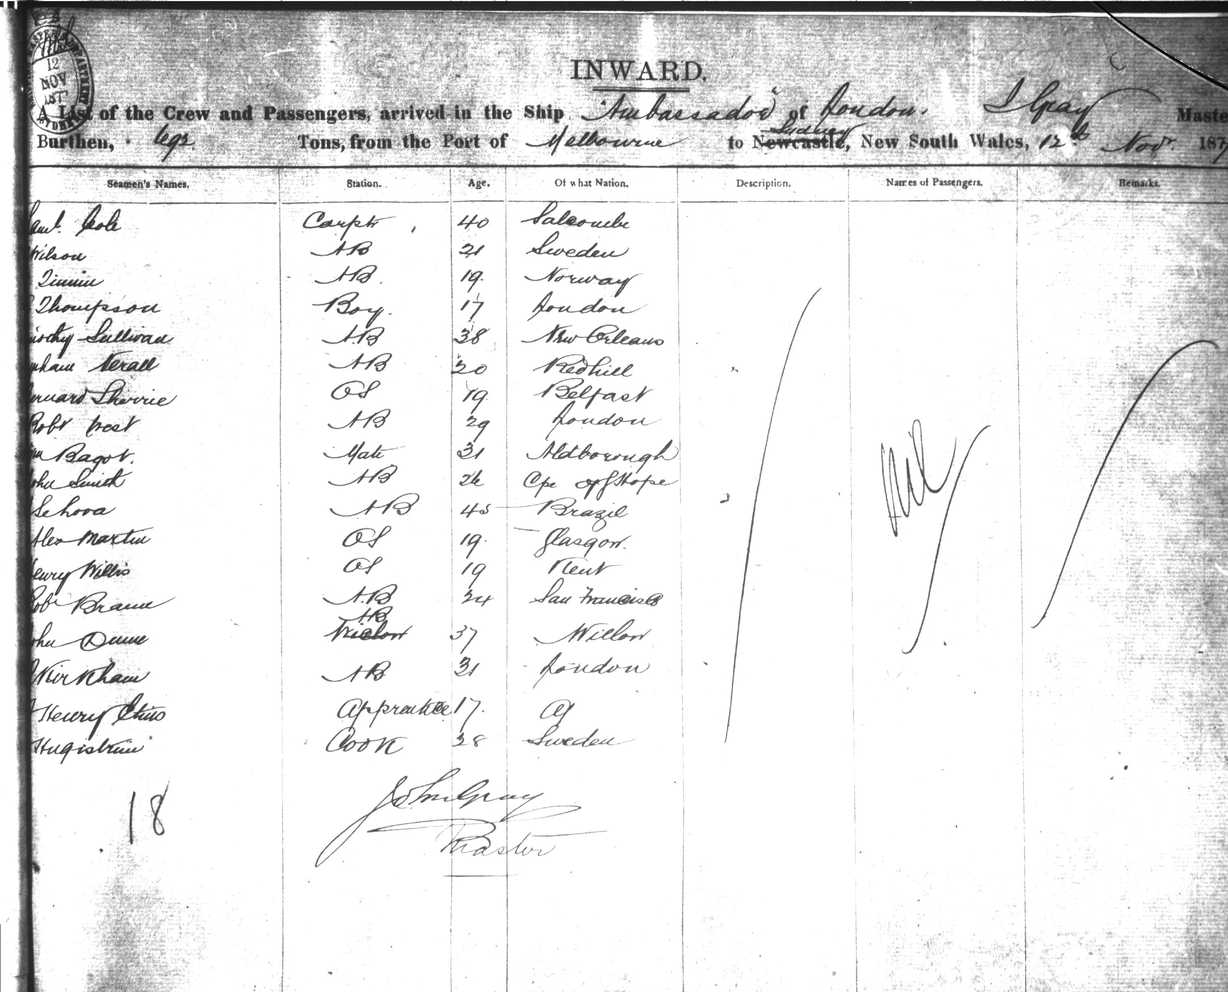 12
NOV
INWARD.
A List of the Crew and Passengers, arrived in the Ship "Ambassador" of London. J Gray Maste
Sydney
Burthen, 692 Tons, from the Port of Melbourne to Newcastle, New South Wales, 12th Novr. 187
Seamen's Names. Station. Age. Of what Nation. Description. Names of Passengers. Remarks.
Cole Carptr 40 Salcombe
Wilson AB 21 Sweden
AB. 19. Norway
Thompson Boy. 17 London
Sullivan AB 38 New Orleans
AB 20 Redhill
OS 19 Belfast
Robt West AB 29 London
Bagot. Mate 31 Aldborough
John Smith AB 26 Cpe of G Hope
AB 45 Brazil
Alex Martin OS 19. Glasgow.
Henry Willis OS 19 Kent
AB 24 San Francisco
AB
John 37
Kirkham AB 31 London
Henry Apprentice 17.
Cook 28 Sweden
Nil
18
John Gray
Master